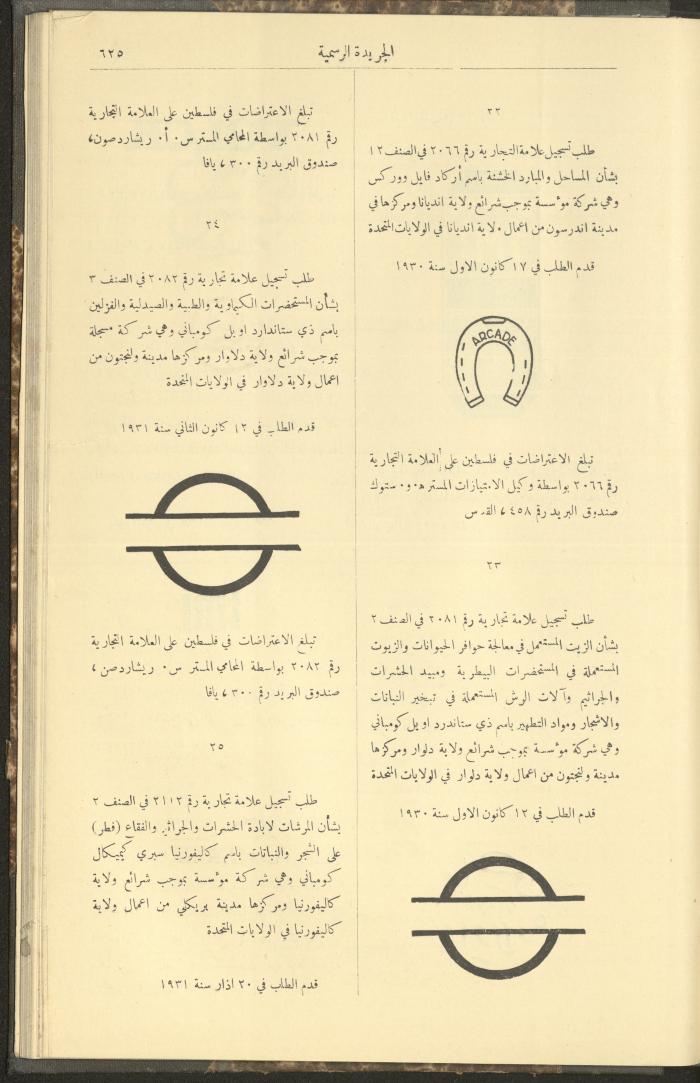 الجريدة الرسمية
٦٢٥
٢٢
طلب تسجيل علامة التجارية رقم ٢٠٦٦ في الصنف ١٢
بشأن المساحل والمبارد الخشنة باسم أركاد فايل ووركس
وهي شركة مؤسسة بموجب شرائع ولاية انديانا ومركزها في
مدينة اندرسون من اعمال ولاية انديانا في الولايات المتحدة
قدم الطلب في ١٧ كانون الاول سنة ١٩٣٠
ARCADE
تبلغ الاعتراضات في فلسطين على العلامة التجارية
رقم ٢٠٦٦ بواسطة وكيل الامتيازات المستر ه٠ و٠ ستوك
صندوق البريد رقم ٤٥٨ ، القدس
٢٣
طلب تسجيل علامة تجارية رقم ٢٠٨١ في الصنف ٢
بشأن الزيت المستعمل في معالجة حوافر الحيوانات والزيوت
المستعملة في المستحضرات البيطرية ومبيد الحشرات
والجراثيم وآلات الرش المستعملة في تبخير النباتات
والاشجار ومواد التطهير باسم ذي ستاندرد اويل كومباني
وهي شركة مؤسسة بموجب شرائع ولاية دلوار ومركزها
مدينة ولنجتون من اعمال ولاية دلوار في الولايات المتحدة
قدم الطلب في ١٢ كانون الاول سنة ١٩٣٠
تبلغ الاعتراضات في فلسطين على العلامة التجارية
رقم ٢٠٨١ بواسطة المحامي المستر س٠ أ٠ ريشاردصون،
صندوق البريد رقم ٣٠٠ ، يافا
٢٤
طلب تسجيل علامة تجارية رقم ٢٠٨٢ في الصنف ٣
بشأن المستحضرات الكيماوية والطبية والصيدلية والفزلين
باسم ذي ستاندارد اويل كومباني وهي شركة مسجلة
بموجب شرائع ولاية دلاوار ومركزها مدينة ولنجتون من
اعمال ولاية دلاوار في الولايات المتحدة
قدم الطلب في ١٢ كانون الثاني سنة ١٩٣١
تبلغ الاعتراضات في فلسطين على العلامة التجارية
رقم ٢٠٨٢ بواسطة المحامي المستر س٠ ريشاردصن ،
صندوق البريد رقم ٣٠٠ ، يافا
٢٥
طلب تسجيل علامة تجارية رقم ٢١١٢ في الصنف ٢
بشأن المرشات لابادة الحشرات والجراثيم والفقاع (فطر)
على الشجر والنباتات باسم كاليفورنيا سبري كيميكال
كومباني وهي شركة مؤسسة بموجب شرائع ولاية
كاليفورنيا ومركزها مدينة بريكلي من اعمال ولاية
كاليفورنيا في الولايات المتحدة
قدم الطلب في ٢٠ اذار سنة ١٩٣١